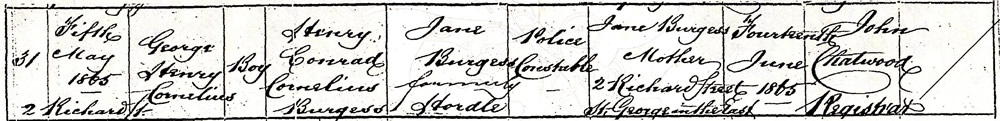 31
Fifth
May
1865
2 Richard St.
George
Henry
Cornelius
Boy
Henry
Conrad
Cornelius
Burgess
Jane
Burgess
formerly
Stordle
Police
Constable
Jane Burgess
Mother
2 Richard Street
St. George in the East
Fourteenth
June
1865
John
Chatwood
Registrar